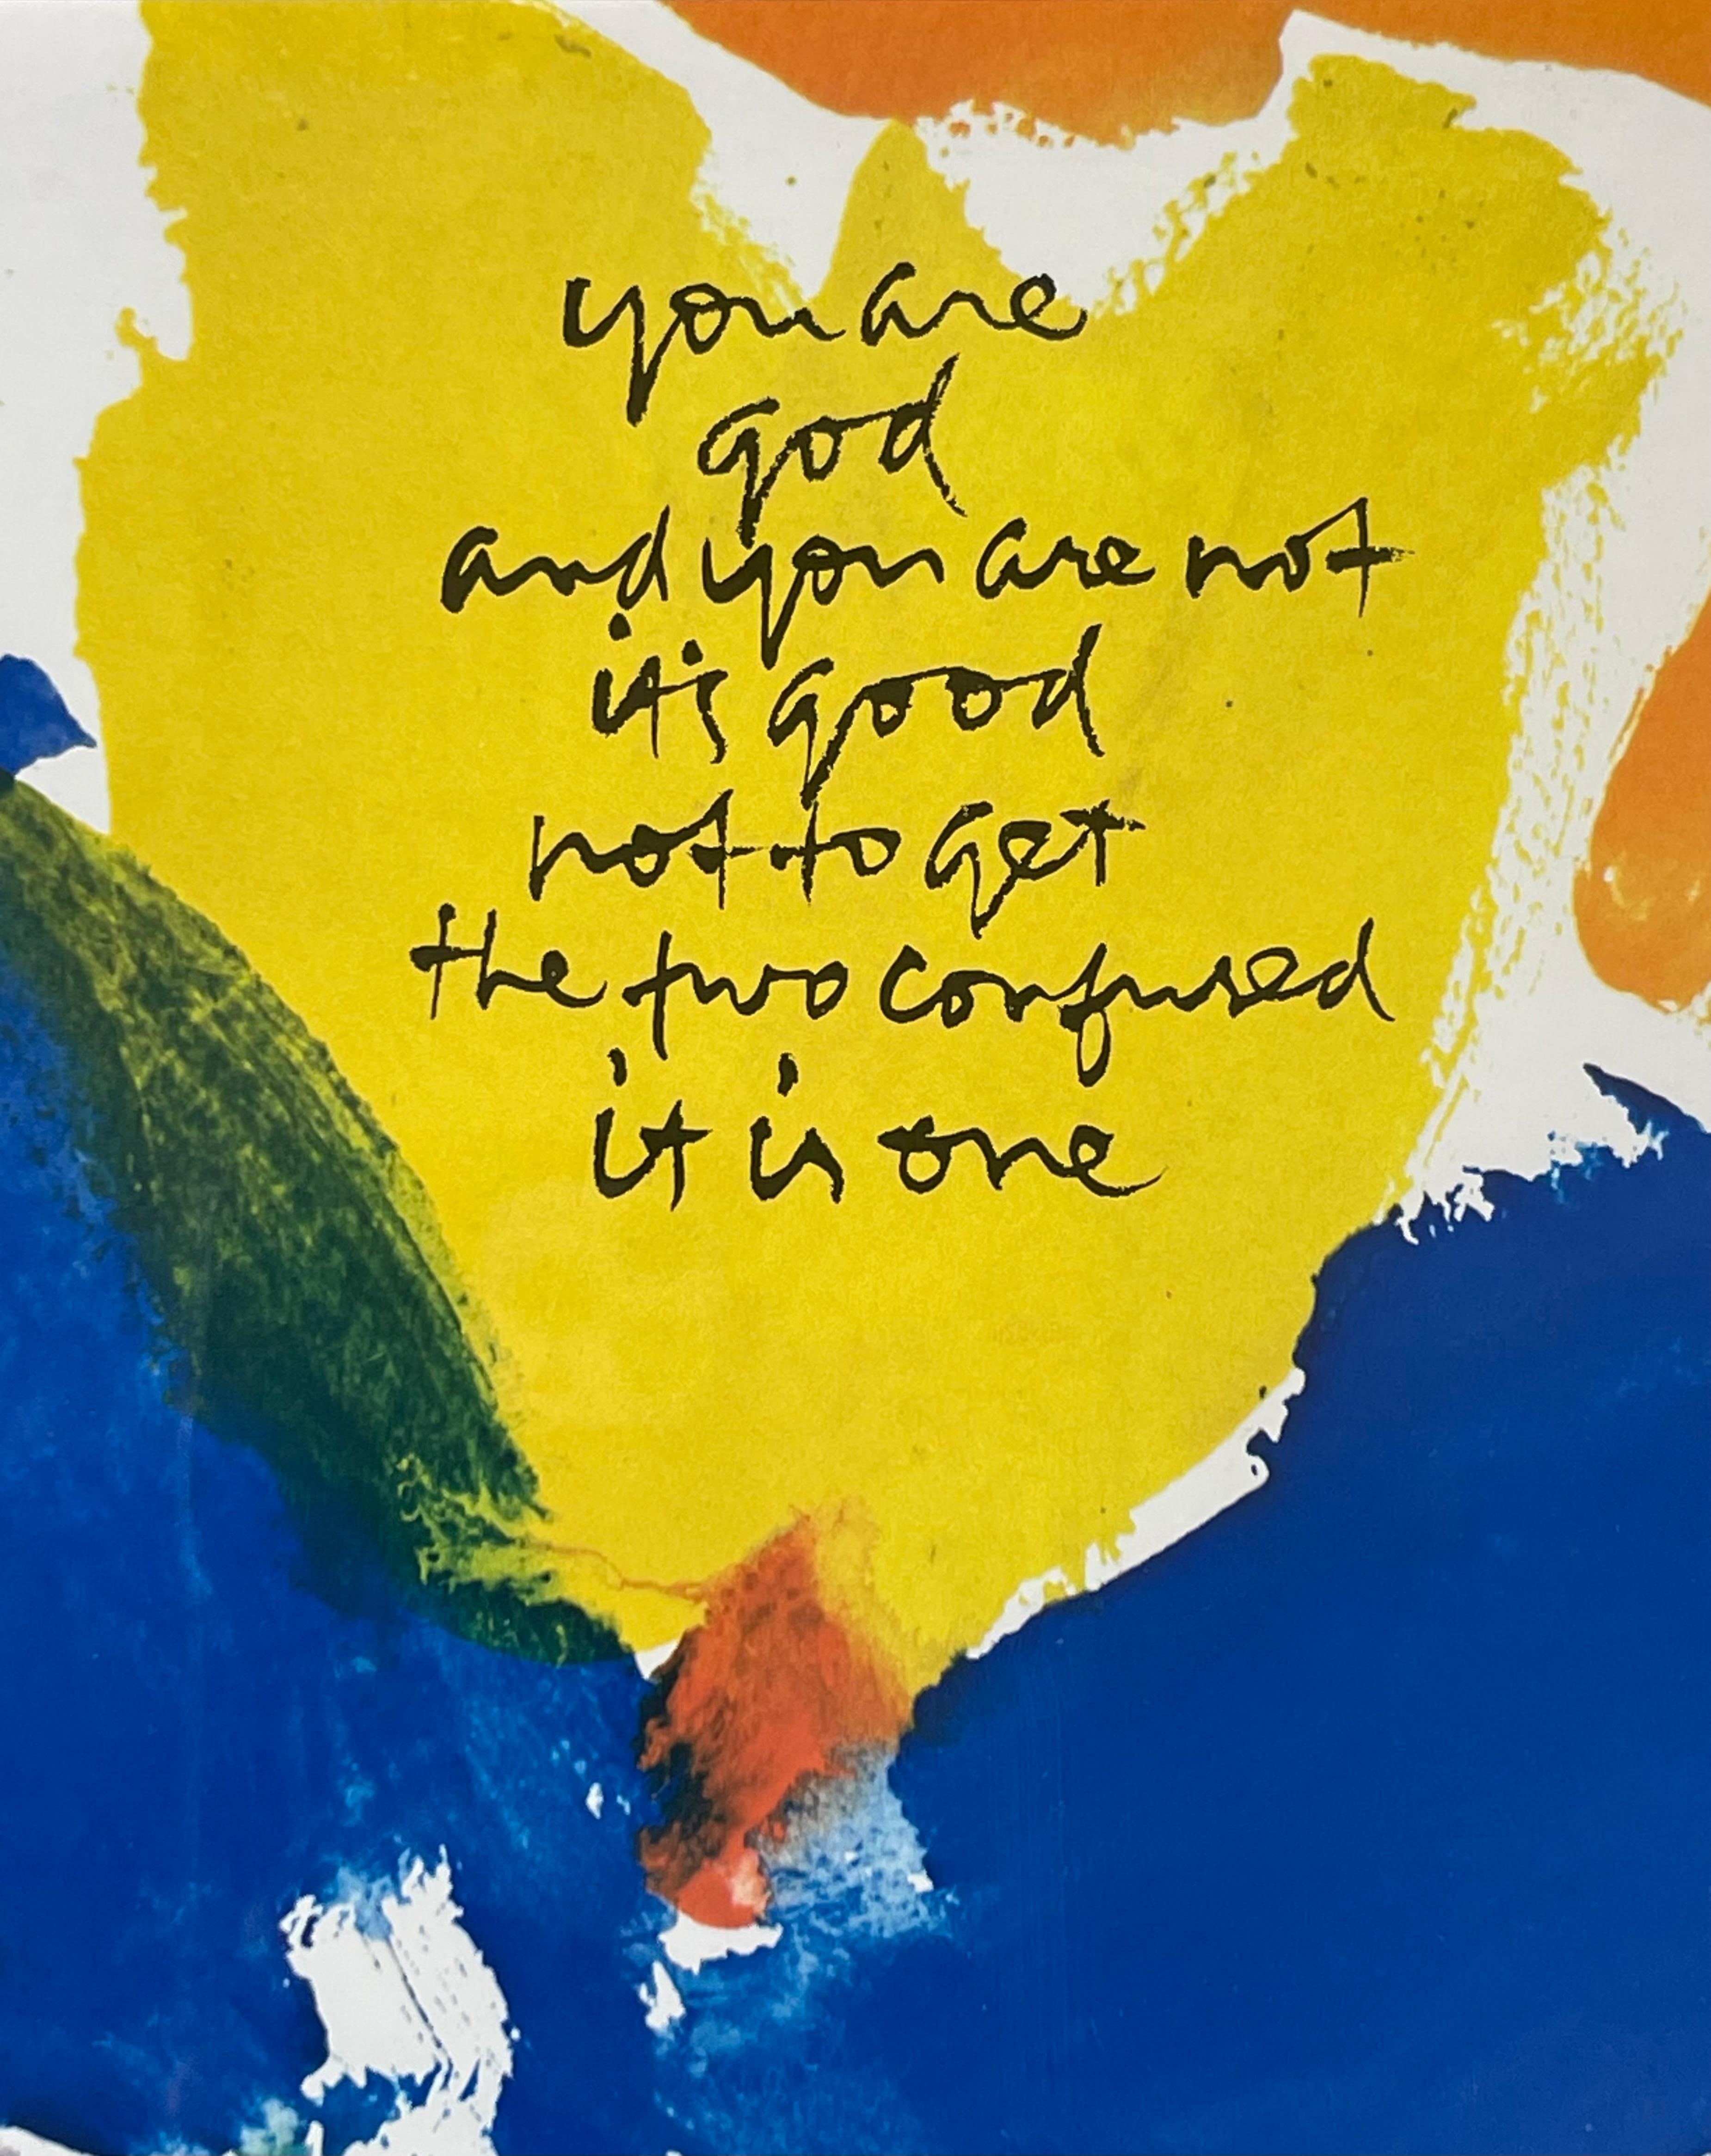 you are
god
and you are not
it's good
not to get
the two confused
it is one